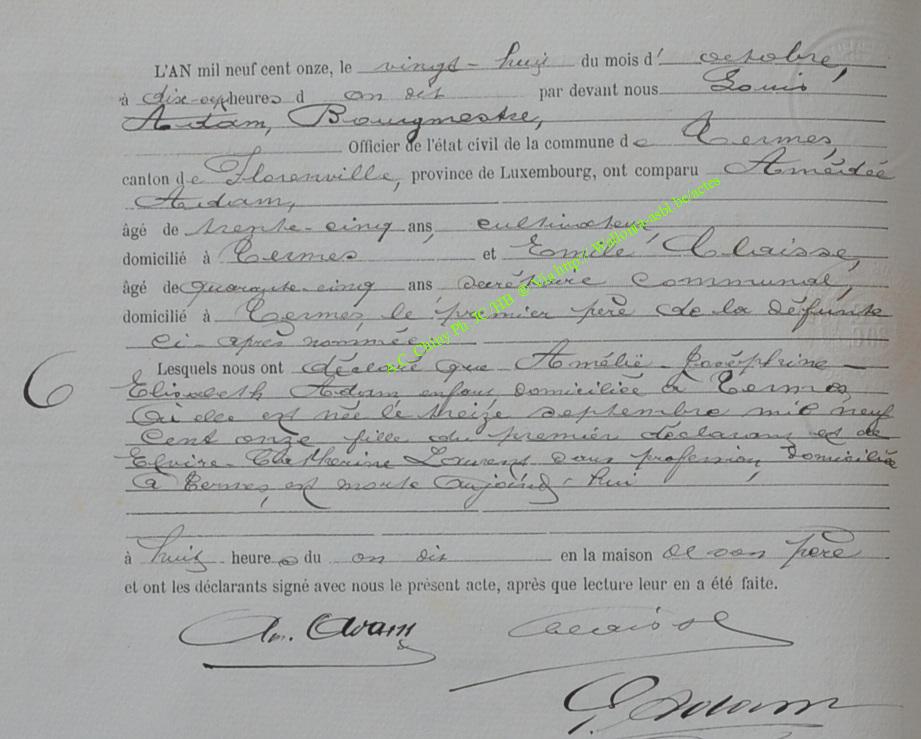 L'AN mil neuf cent onze, le vingt-huit du mois d'octobre,
à dix-sept heures d par devant nous Louis
Adam, Bourgmestre,
Officier de l'état civil de la commune de Termes,
canton de Florenville, province de Luxembourg, ont comparu Amédée
Adam,
âgé de trente-cinq ans, cultivateur
domicilié à Termes et Emile Claisse,
âgé de quarante-cinq ans, secrétaire communal,
domicilié à Termes, le premier père de la défunte
ci-après nommée
Lesquels nous ont déclaré que Amélie-Joséphine-
Elisabeth Adam enfant, domiciliée à Termes,
où elle est née le treize septembre mil neuf
cent onze fille du premier déclarant et de
Elvire-Catherine Laurent sans profession, domiciliée
à Termes, est morte aujourd'hui
à huit heures du en la maison de son père
et ont les déclarants signé avec nous le présent acte, après que lecture leur en a été faite.
6
Am. Adam Claisse
L. Adam